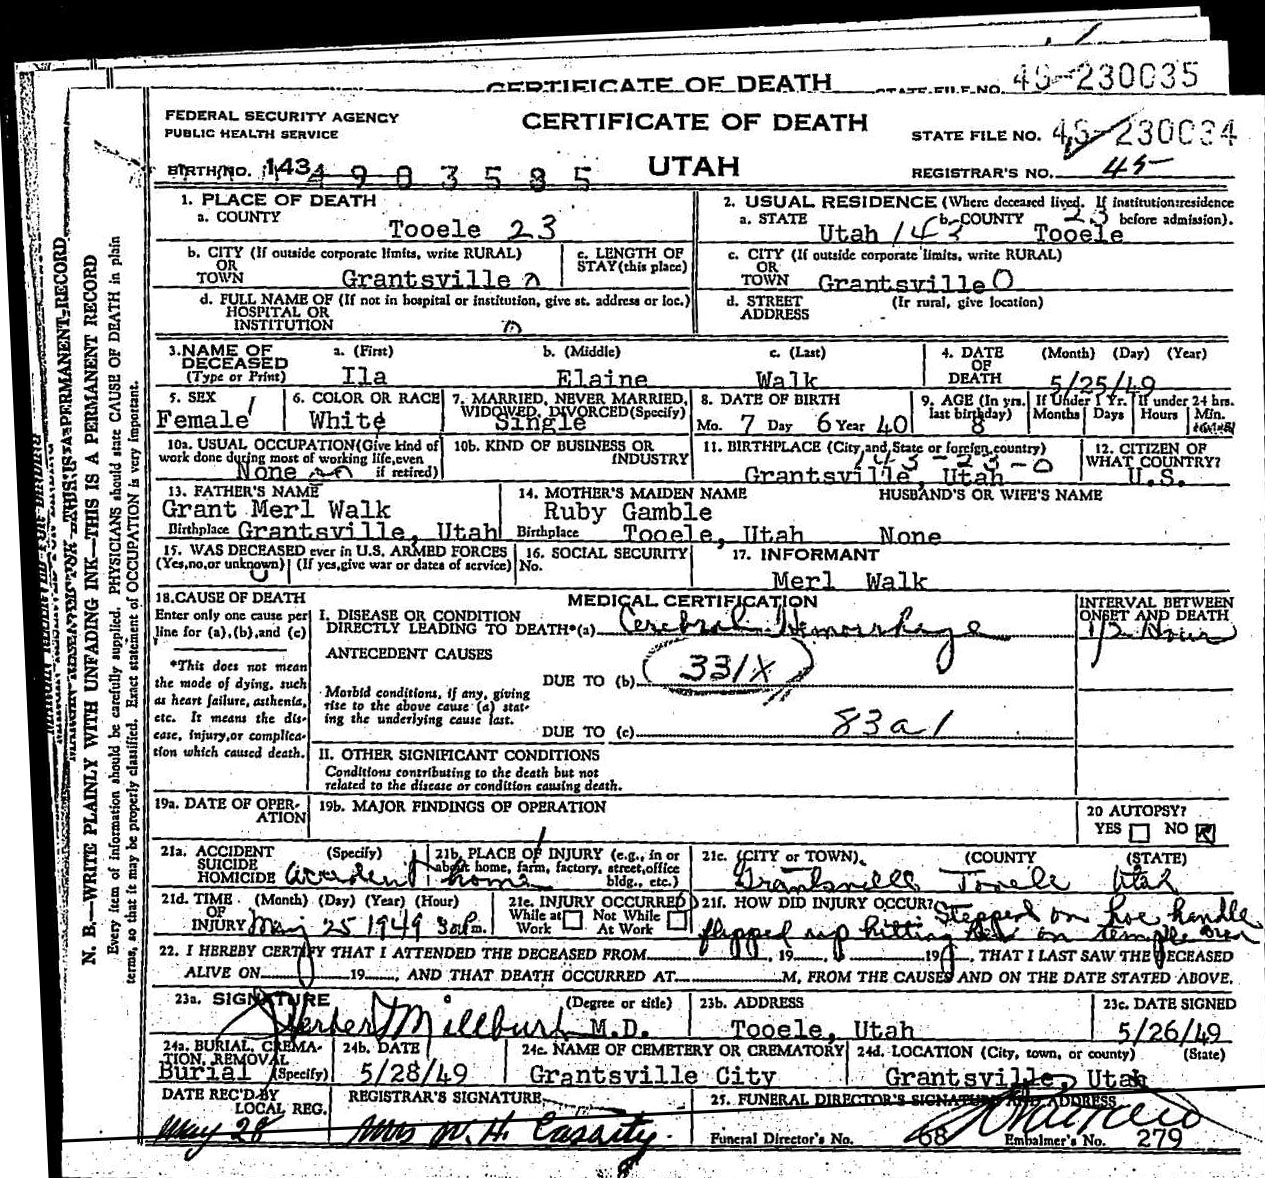 CERTIFICATE OF DEATH STATE FILE NO. 49-230035
FEDERAL SECURITY AGENCY
PUBLIC HEALTH SERVICE
CERTIFICATE OF DEATH
STATE FILE NO. 49-230034
BIRTH NO. 143
UTAH
REGISTRAR'S NO. 45
1. PLACE OF DEATH
a. COUNTY
Tooele 23
2. USUAL RESIDENCE (Where deceased lived. If institution:residence before admission).
a. STATE Utah 143 b. COUNTY 23 Tooele
b. CITY (If outside corporate limits, write RURAL)
OR
TOWN Grantsville
c. LENGTH OF
STAY (this place)
c. CITY (If outside corporate limits, write RURAL)
OR
TOWN Grantsville 0
d. FULL NAME OF (If not in hospital or institution, give st. address or loc.)
HOSPITAL OR
INSTITUTION
d. STREET (If rural, give location)
ADDRESS
3. NAME OF
DECEASED
(Type or Print)
a. (First) Ila
b. (Middle) Elaine
c. (Last) Walk
4. DATE
OF
DEATH
(Month) (Day) (Year)
5/25/49
5. SEX
Female
6. COLOR OR RACE
White
7. MARRIED, NEVER MARRIED,
WIDOWED, DIVORCED (Specify)
Single
8. DATE OF BIRTH
Mo. 7 Day 6 Year 40
9. AGE (In yrs.
last birthday)
8
If Under 1 Yr.
Months Days
If under 24 hrs.
Hours Min.
10a. USUAL OCCUPATION (Give kind of
work done during most of working life, even
if retired)
None
10b. KIND OF BUSINESS OR
INDUSTRY
11. BIRTHPLACE (City and State or foreign country)
143-23-0
Grantsville, Utah
12. CITIZEN OF
WHAT COUNTRY?
U.S.
13. FATHER'S NAME
Grant Merl Walk
Birthplace Grantsville, Utah
14. MOTHER'S MAIDEN NAME
Ruby Gamble
Birthplace Tooele, Utah
HUSBAND'S OR WIFE'S NAME
None
15. WAS DECEASED ever in U.S. ARMED FORCES
(Yes, no, or unknown) (If yes, give war or dates of service)
16. SOCIAL SECURITY
No.
17. INFORMANT
Merl Walk
18. CAUSE OF DEATH
Enter only one cause per
line for (a), (b), and (c)
*This does not mean
the mode of dying, such
as heart failure, asthenia,
etc. It means the dis-
ease, injury, or complica-
tion which caused death.
MEDICAL CERTIFICATION
I. DISEASE OR CONDITION
DIRECTLY LEADING TO DEATH*(a) Cerebral Hemorrhage
INTERVAL BETWEEN
ONSET AND DEATH
1/2 Hour
ANTECEDENT CAUSES
DUE TO (b) 331X
Morbid conditions, if any, giving
rise to the above cause (a) stat-
ing the underlying cause last.
DUE TO (c) 83a1
II. OTHER SIGNIFICANT CONDITIONS
Conditions contributing to the death but not
related to the disease or condition causing death.
19a. DATE OF OPER-
ATION
19b. MAJOR FINDINGS OF OPERATION
20 AUTOPSY?
YES NO
21a. ACCIDENT (Specify)
SUICIDE
HOMICIDE Accident
21b. PLACE OF INJURY (e.g., in or
about home, farm, factory, street, office
bldg., etc.)
home
21c. (CITY or TOWN) (COUNTY) (STATE)
Grantsville Tooele Utah
21d. TIME (Month) (Day) (Year) (Hour)
OF
INJURY May 25 1949 3 p.m.
21e. INJURY OCCURRED
While at Work Not While At Work
21f. HOW DID INJURY OCCUR? Stepped on hoe handle
flipped up hitting her on temple area
22. I HEREBY CERTIFY THAT I ATTENDED THE DECEASED FROM 19 19 , THAT I LAST SAW THE DECEASED
ALIVE ON 19 , AND THAT DEATH OCCURRED AT M, FROM THE CAUSES AND ON THE DATE STATED ABOVE.
23a. SIGNATURE (Degree or title)
Herbert Millburn M.D.
23b. ADDRESS
Tooele, Utah
23c. DATE SIGNED
5/26/49
24a. BURIAL, CREMA-
TION, REMOVAL
Burial (Specify)
24b. DATE
5/28/49
24c. NAME OF CEMETERY OR CREMATORY
Grantsville City
24d. LOCATION (City, town, or county) (State)
Grantsville, Utah
DATE REC'D BY
LOCAL REG.
May 28
REGISTRAR'S SIGNATURE
Mrs W. H. Cassity
25. FUNERAL DIRECTOR'S SIGNATURE AND ADDRESS
Funeral Director's No. 68 Embalmer's No. 279
N. B.—WRITE PLAINLY WITH UNFADING INK—THIS IS A PERMANENT RECORD
Every item of information should be carefully supplied. PHYSICIANS should state CAUSE OF DEATH in plain
terms, so that it may be properly classified. Exact statement of OCCUPATION is very important.